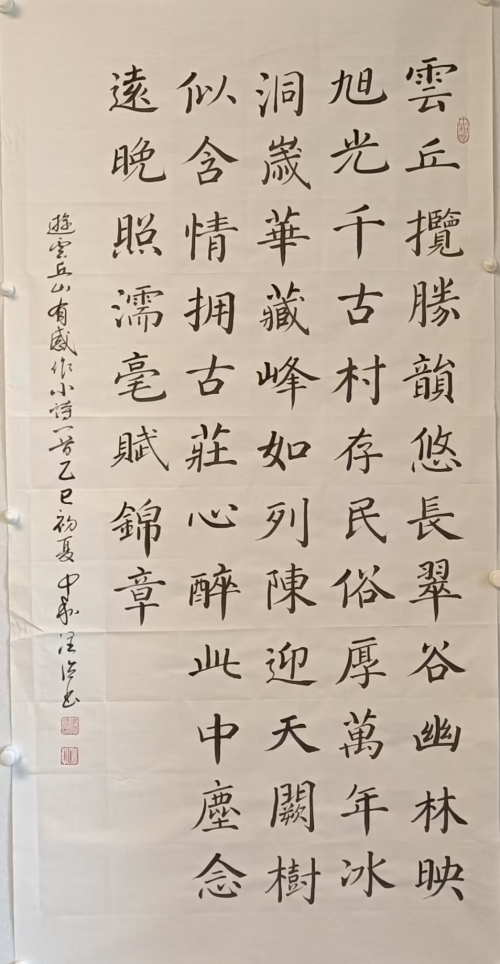 雲丘攬勝韻悠長翠谷幽林映
旭光千古村存民俗厚萬年冰
洞嵗華藏峰如列陳迎天闕樹
似含情拥古莊心醉此中塵念
遠晚照濡毫賦錦章
遊雲丘山有感作小詩一首乙巳初夏